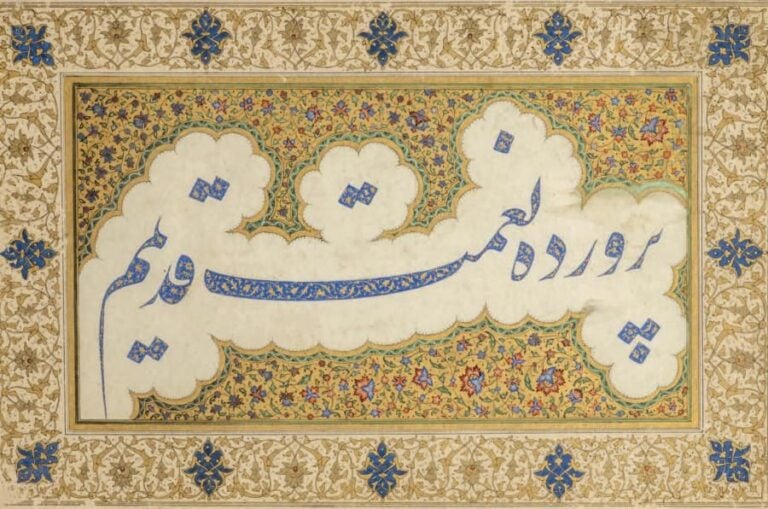 پرورده نعمت قدیم